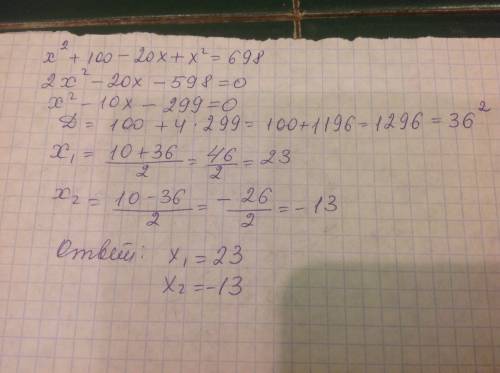 x² + 100 - 20x + x² = 698
2x² - 20x - 598 = 0
x² - 10x - 299 = 0
Д = 100 + 4 · 299 = 100 + 1196 = 1296 = 36²
x₁ = (10 + 36)/2 = 46/2 = 23
x₂ = (10 - 36)/2 = - 26/2 = - 13
Ответ: x₁ = 23
x₂ = -13